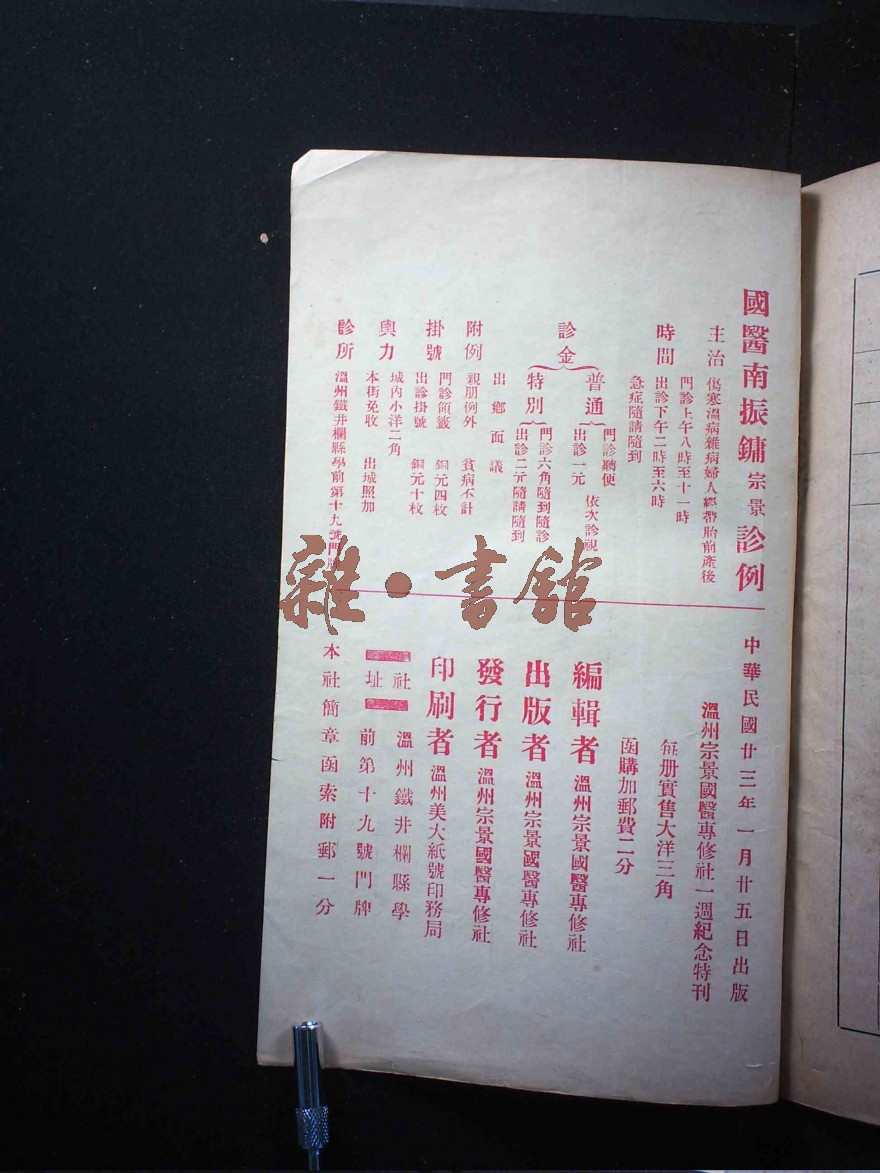 國醫南振鏞宗景診例
主治 傷寒溫病雜病婦人經帶胎前產後
時間 門診上午八時至十一時
出診下午二時至六時
急症隨請隨到
診金
普通 門診聽便 依次診視
出診一元
特別 門診六角隨到隨診
出診二元隨請隨到
出鄉面議
附例 親朋例外 貧病不計
掛號 門診領籤 銅元四枚
出診掛號 銅元十枚
輿力 城內小洋二角
本街免收 出城照加
診所 溫州鐵井欄縣學前第十九號門牌
中華民國廿三年一月廿五日出版
溫州宗景國醫專修社一週紀念特刊
每册實售大洋三角
函購加郵費二分
編輯者 溫州宗景國醫專修社
出版者 溫州宗景國醫專修社
發行者 溫州宗景國醫專修社
印刷者 溫州美大紙號印務局
社址 溫州鐵井欄縣學
前第十九號門牌
本社簡章函索附郵一分
雜·書館